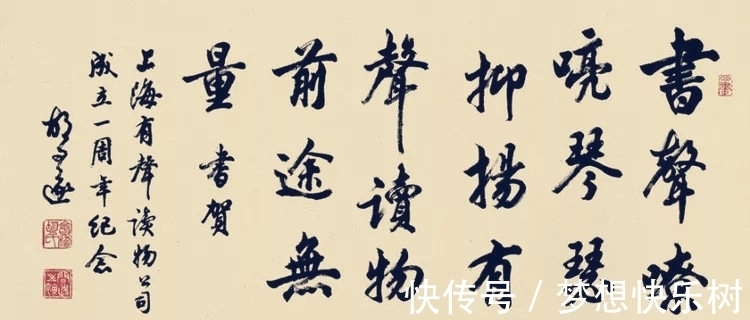 書聲嘹
喨琴瑟
抑揚有
聲讀物
前途無
量 書賀
上海有聲读物公司
成立一周年纪念
胡问遂
快传号 / 梦想快乐树